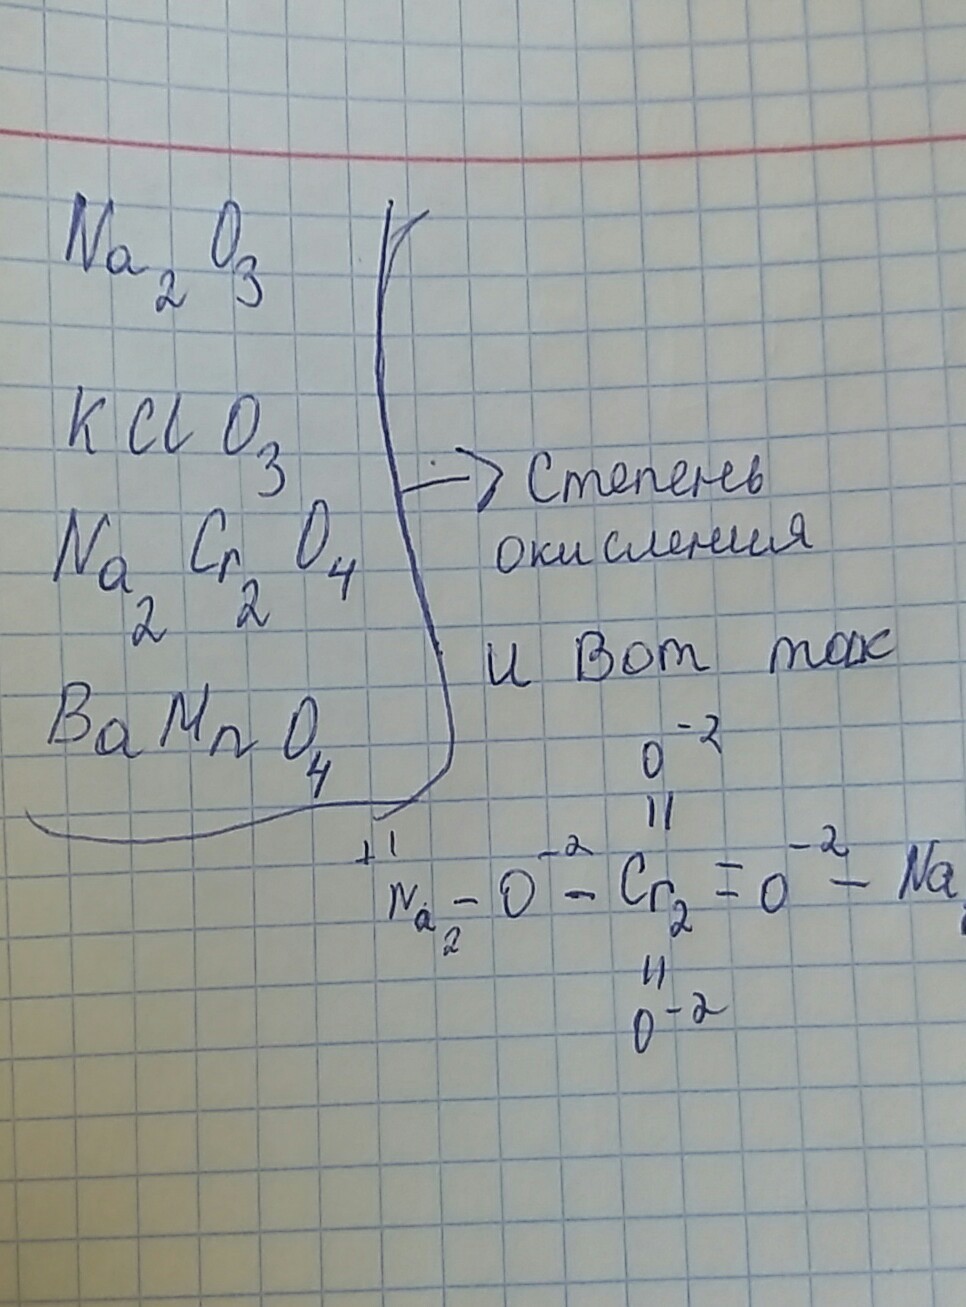 Na₂O₃
KClO₃
Na₂Cr₂O₄
BaMnO₄
→ Степень
окисления
и Вот так
O⁻²
||
⁺¹Na₂ – O⁻² – Cr₂ = O⁻² – Na
||
O⁻²